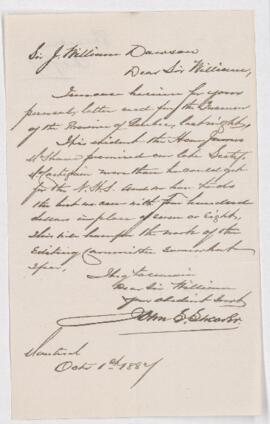 Sir J. William Dawson
Dear Sir William,
I enclose herein for your
perusal, letter recd from the Treasurer
of the Province of Quebec, last night,
It is evident the Hon James
McShane promised on
more than he could get
for the N.H.S. And as he finds
the best we can with four hundred
dollars in place of seven or eight,
This will hamper the work of the
Existing Committee somewhat
I remain
Dear Sir William
Your obedient Servt
John S. Shearer
Montreal
Octr 1st 1887